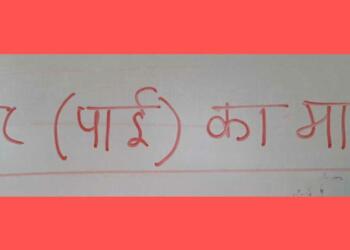 (पाई) का मा